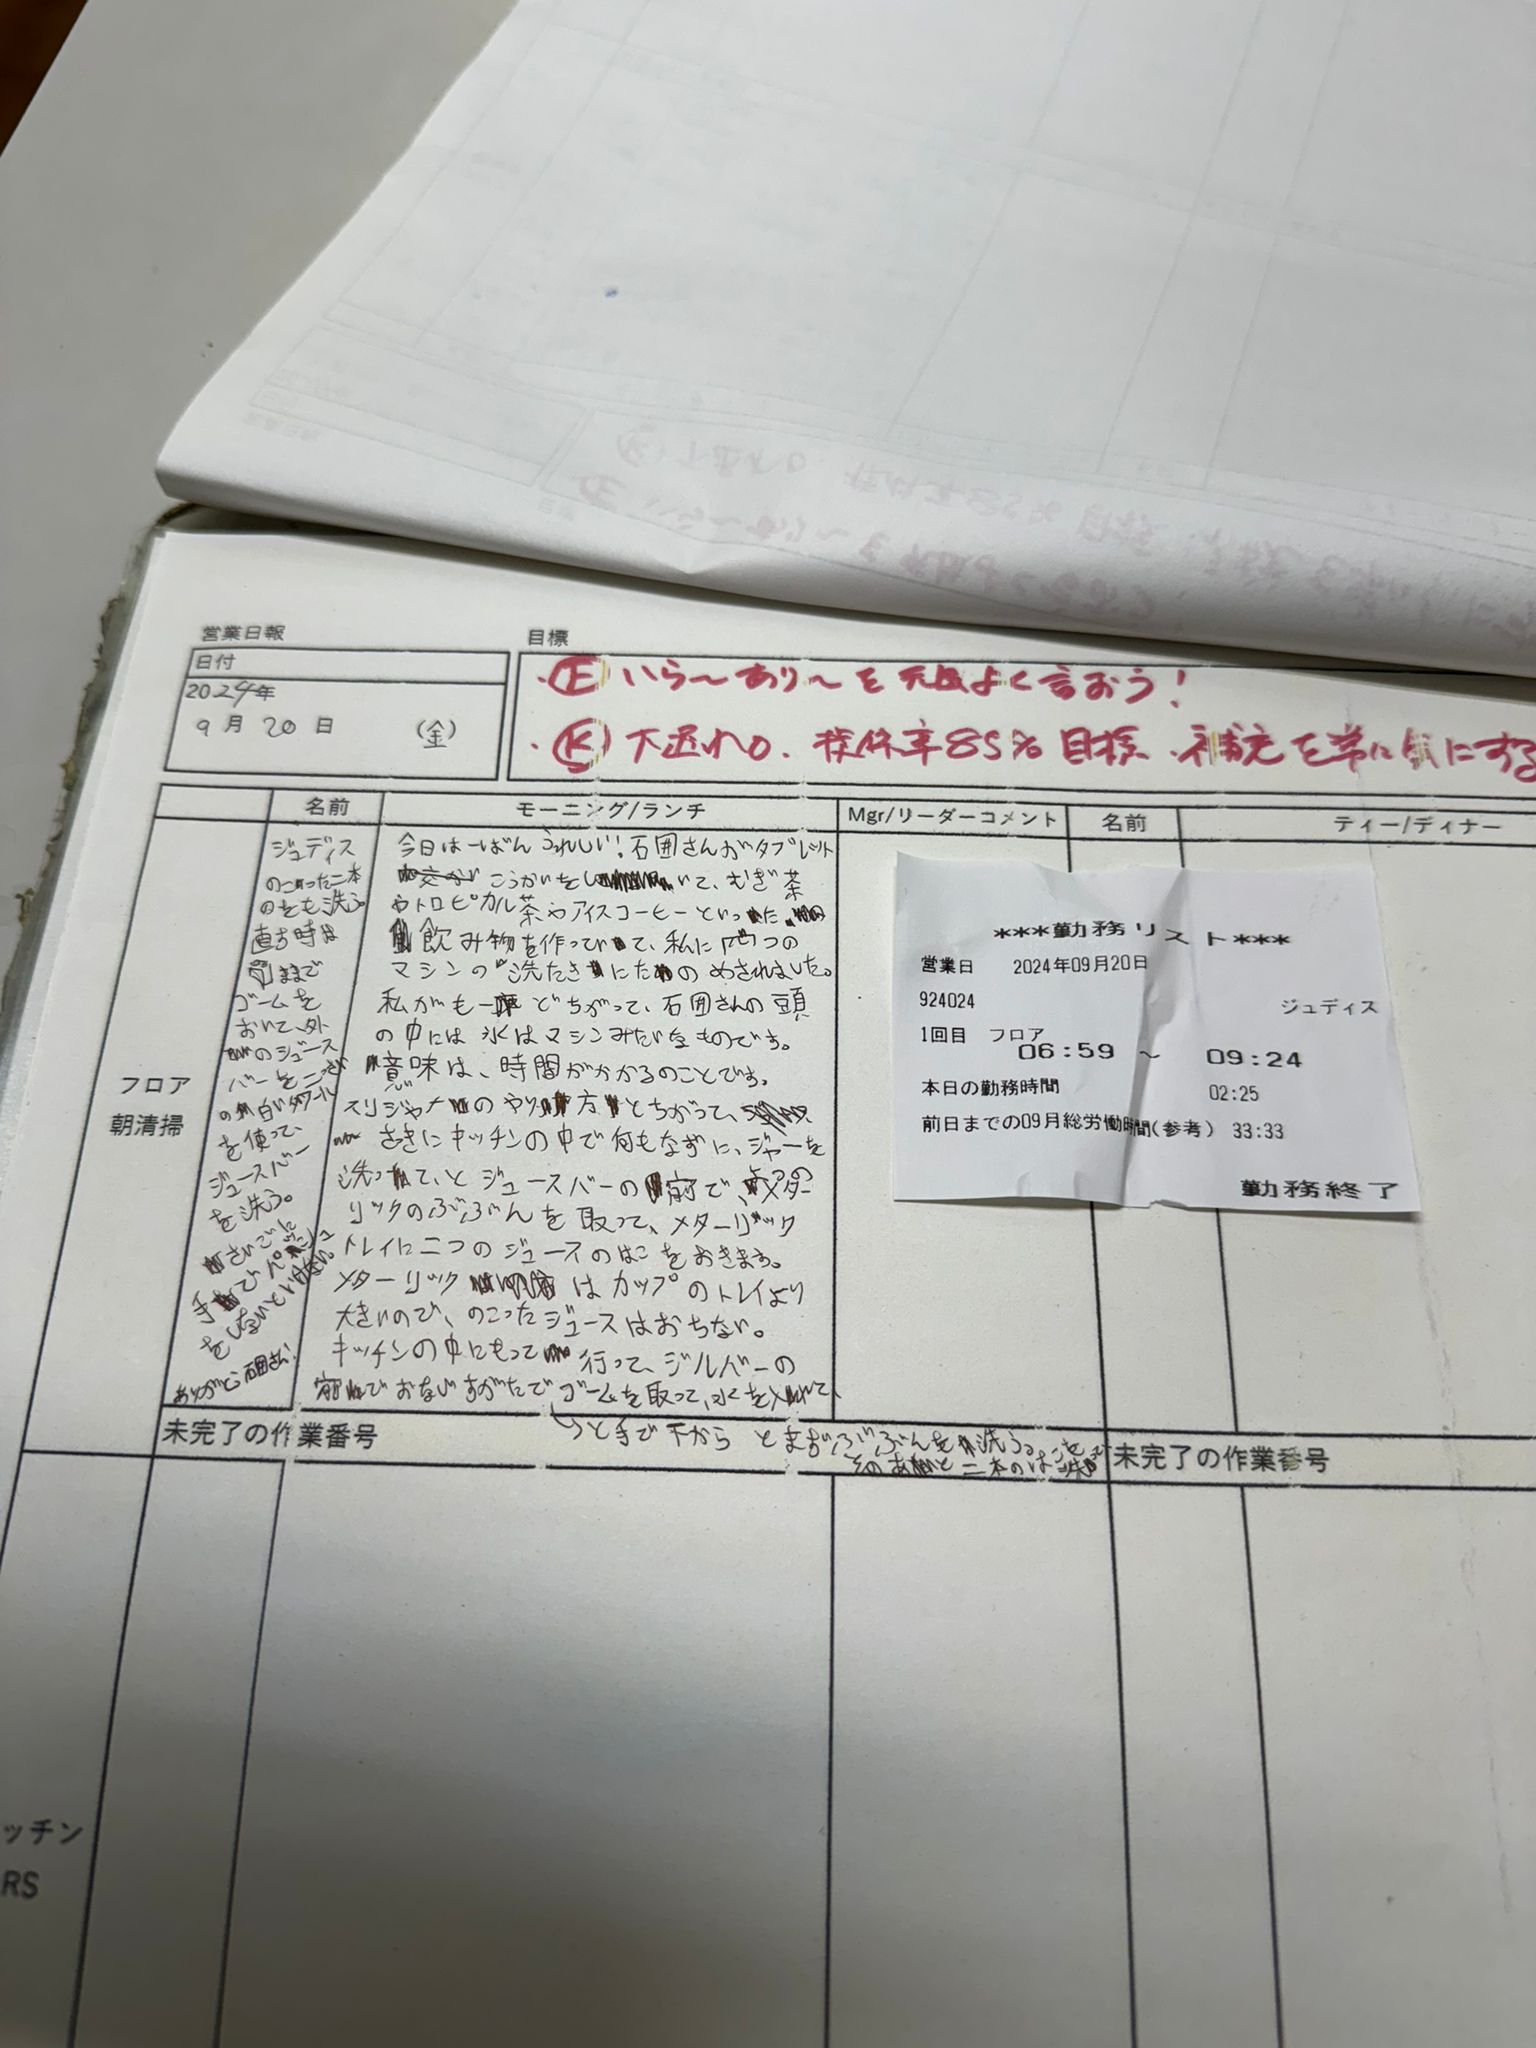 営業日報
日付
2024年
9月20日 (金)
目標
・Ⓕ いら〜あり〜を元気よく言おう!
・Ⓚ 下送れ0. 稼働率85%目標、補充を常に気にする
名前
モーニング/ランチ
Mgr/リーダーコメント
名前
ティー/ディナー
フロア
朝清掃
ジュディス
のこった二本
のをも洗ふ
直す時は
ままで
ゴームを
おいて、外
のジュース
バーを
の白いタワール
を使って、
ジュースバー
を洗ふ。
さいごに
手で
をしないといけない。
ありがとう石囲さん!
今日は一ばんうれしい!石囲さんがタブレット
こうかいをして、むぎ茶
やトロピカル茶やアイスコーヒーといった
飲み物を作っていて、私に つの
マシンの洗たきにたのめされました。
私がも どちがって、石囲さんの頭
の中には氷はマシンみたいなものです。
意味は、時間がかかるのことです。
スリジャナのやり方とちがって、
さきにキッチンの中で何もなずに、ジャーを
洗って、とジュースバーの前で、メター
リックのぶぶんを取って、メターリック
トレイに二つのジュースのはこをおきます。
メターリックはカップのトレイより
大きいので、のこったジュースはおちない。
キッチンの中にもって行って、ジルバーの
前でおなじすがたでゴームを取って、水を入れて、
っと手で下から とまずぶぶんを洗う。
そのあと二本のはこを
未完了の作業番号
未完了の作業番号
***勤務リスト***
営業日 2024年09月20日
924024 ジュディス
1回目 フロア
06:59 ～ 09:24
本日の勤務時間 02:25
前日までの09月総労働時間(参考) 33:33
勤務終了
ッチン
RS